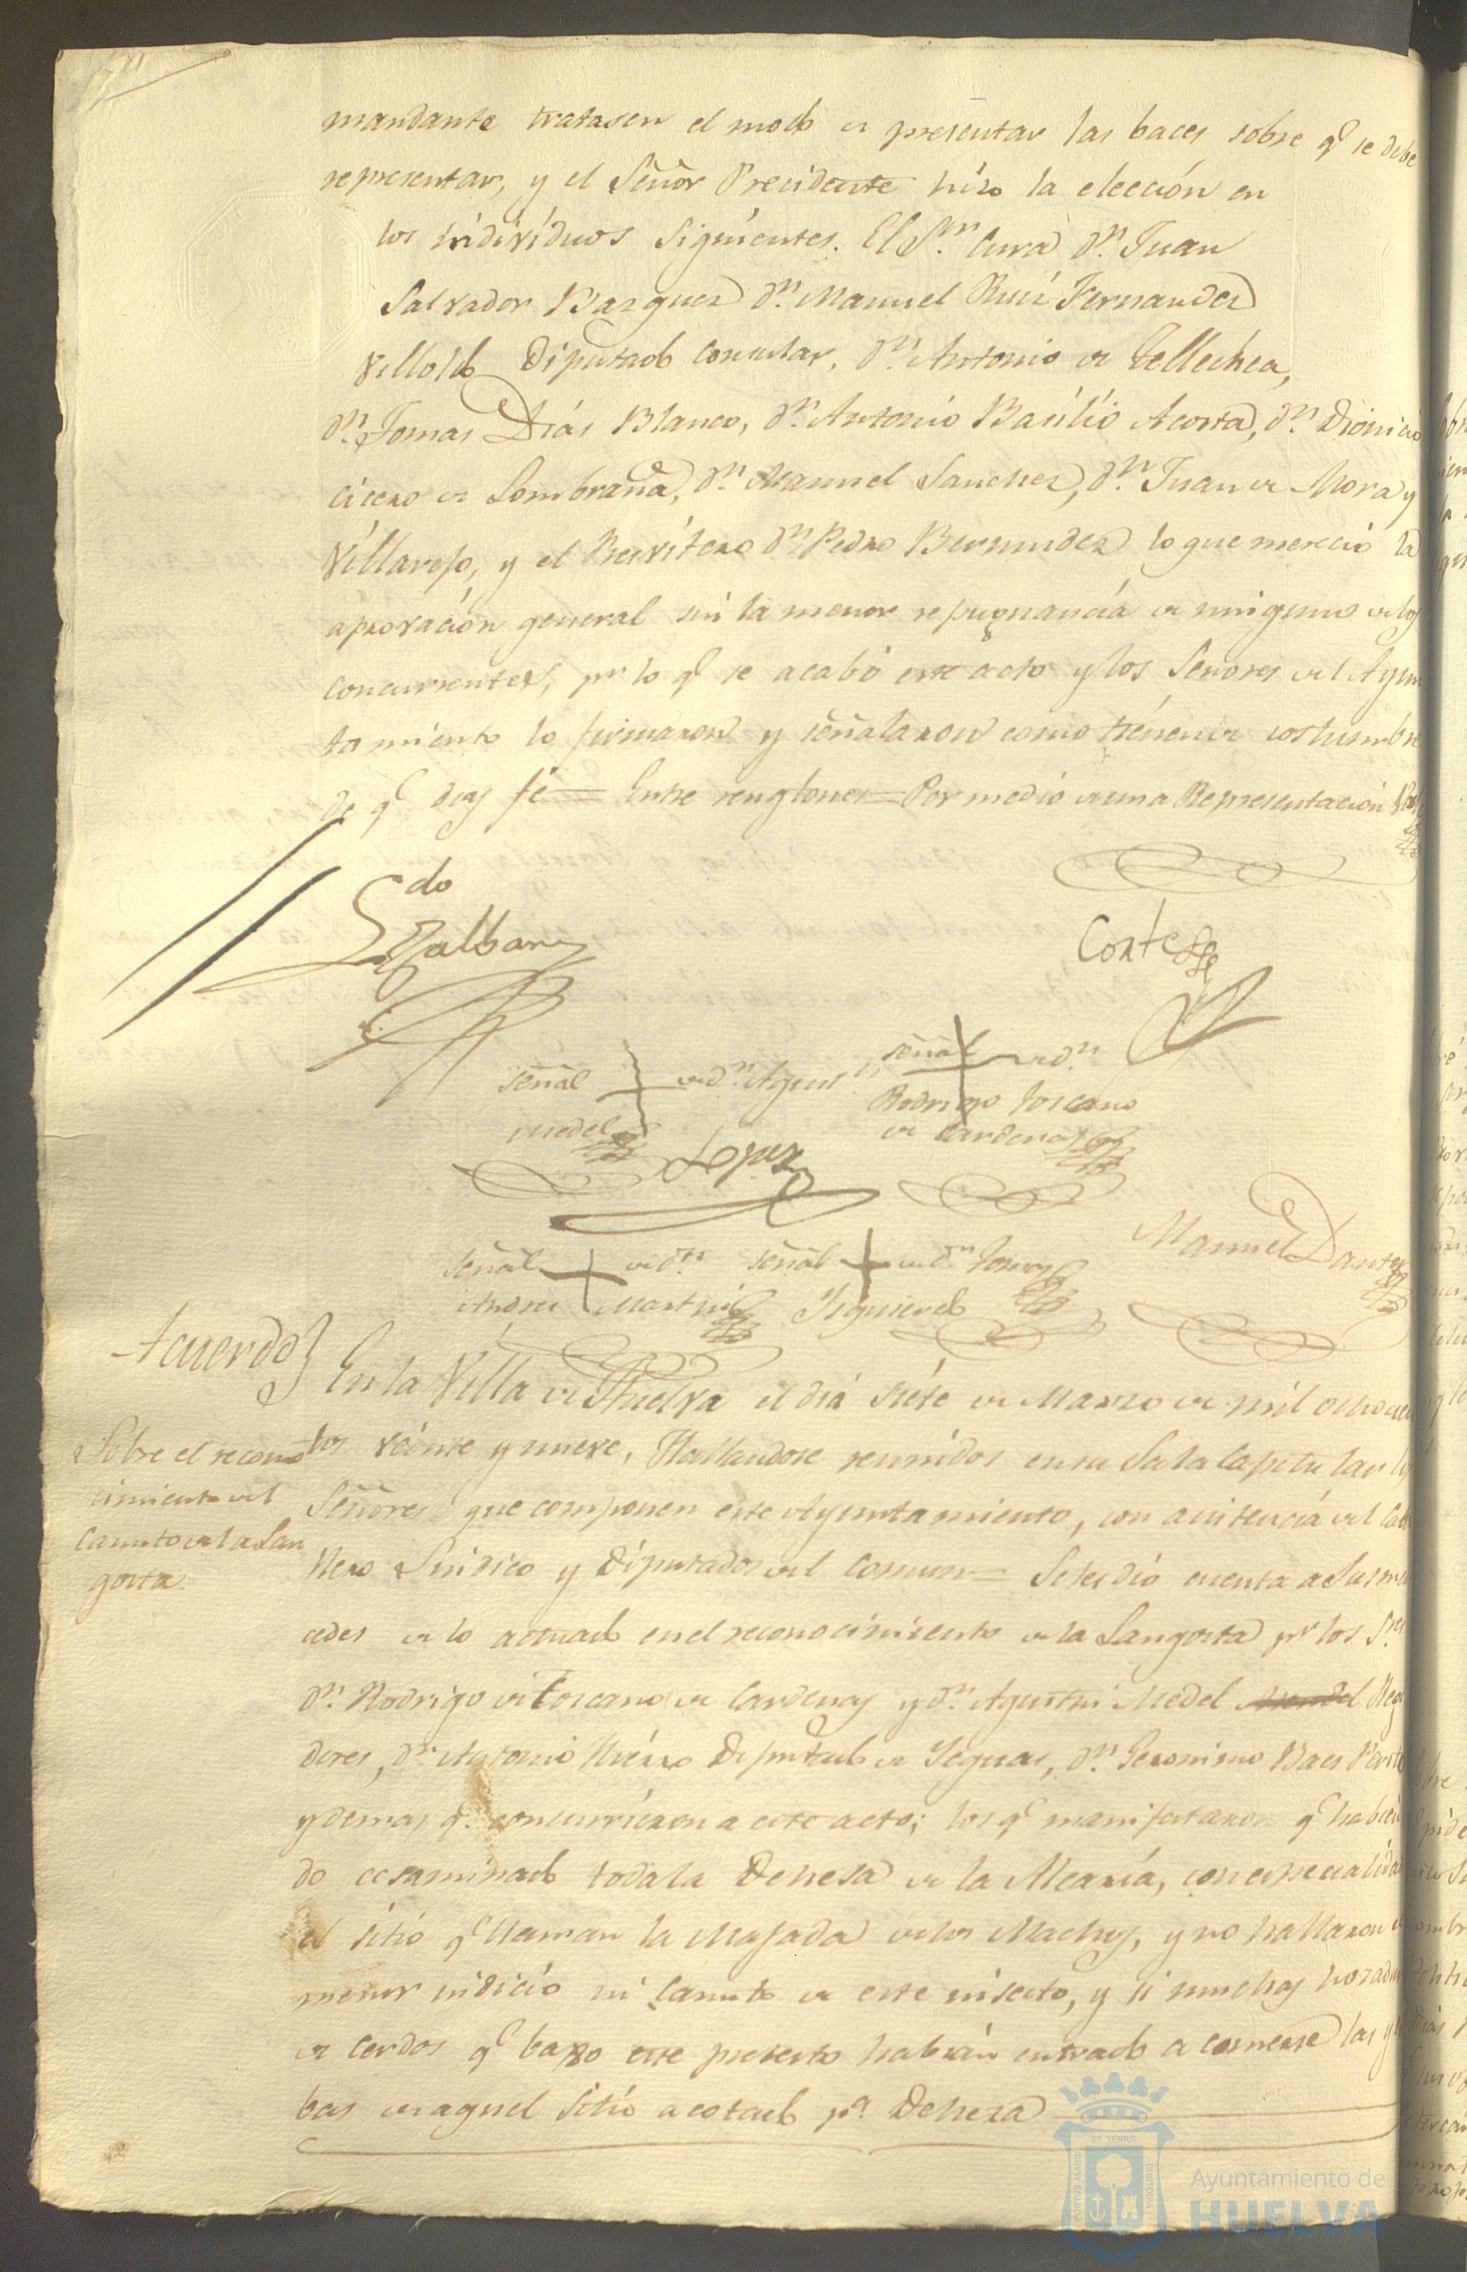 mandante tratasen el modo de presentar las baces sobre q.e se debe
representar, y el Señor Precidente hizo la elección en
los individuos siguientes. El S.or Cura d.n Juan
Salvador Bazquez d.n Manuel Ruiz Fernandez
Villoldo Diputado Consular, d.n Antonio de Tellechea,
d.n Tomas Días Blanco, d.n Antonio Basilio Acosta, d.n Dionicio
Cicero de Lombraña, d.n Manuel Sanchez, d.n Juan de Mora y
Villarejo, y el Presvítero d.n Pedro Bermudez lo que mereció la
aprovación general sin la menor repugnancia de ninguno de los
concurrentes, p.r lo q.e se acabó este acto y los Señores del Ayun
tamiento lo firmaron y señalaron como tienen de costumbre
de q.e doy fé = Entre renglones = Por medio de una Representación
Ldo
Cortes
señal de d.n Agust.n
Medel
señal de d.n
Rodrigo Toscano
de Cardenas
Lopez
señal de d.n
Andres Martin
señal de d.n Tomas
Yzquierdo
Manuel Dante
Acuerdo
Sobre el recono
cimiento del
Canuto de la Lan
gosta.
En la Villa de Huelva el día siete de Marzo de mil ochocien
tos veinte y nueve, Hallandose reunidos en su Sala Capitular los
Señores que componen este Ayuntamiento, con acistencia del Cab
llero Sindico y Diputados del Comun = Se les dió cuenta a Sus mer
cedes de lo actuado en el reconocimiento de la Langosta p.r los S.res
d.n Rodrigo de Toscano de Cardenas y d.n Agustin Medel Regi
dores, d.n Antonio Hierro Diputado de Yeguas, d.n Geronimo Baes Perito
y demas q.e concurrieron a este acto; los q.e manifestaron q.e habien
do ecsaminado toda la Dehesa de la Alcaría, con especialidad
el sitio q.e llaman la Majada de los Machos, y no hallaron el
menor indicio ni Canuto de este insecto, y si muchas hozaduras
de cerdos q.e baxo este pretesto habian entrado a comerse las yer
bas de aquel sitio acotado p.a Deheza
PORTUS MARIS ET TERRAE CUSTODIA
Ayuntamiento de
HUELVA